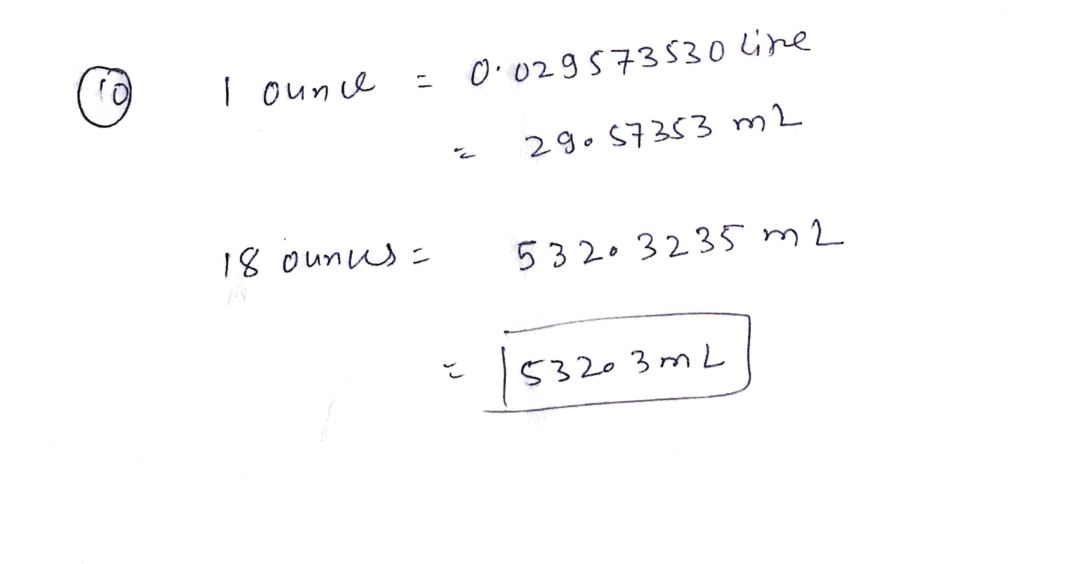 10 1 ounce = 0.029573530 litre
= 29.57353 mL
18 ounces = 532.3235 mL
= 532.3 mL